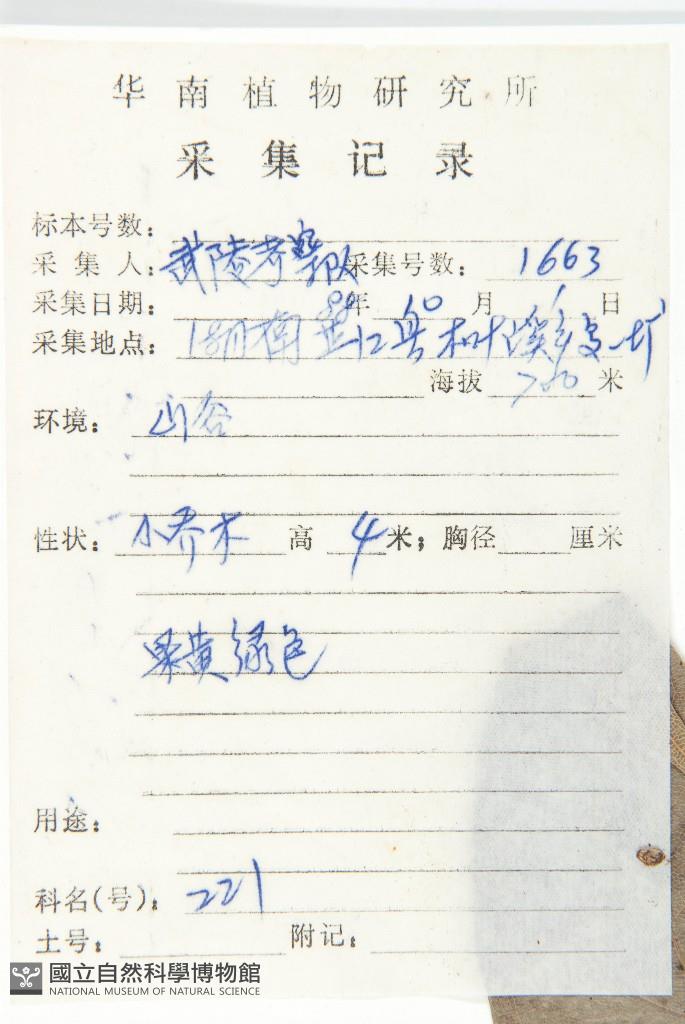 华南植物研究所
采集记录
标本号数：
采集人：武陵考察队 采集号数：1663
采集日期： 88年10月1日
采集地点：湖南芷江县木叶溪乡
海拔 700 米
环境：山谷
性状：小乔木 高 4 米；胸径 厘米
果黄绿色
用途：
科名(号)：221
土号： 附记：
國立自然科學博物館
NATIONAL MUSEUM OF NATURAL SCIENCE